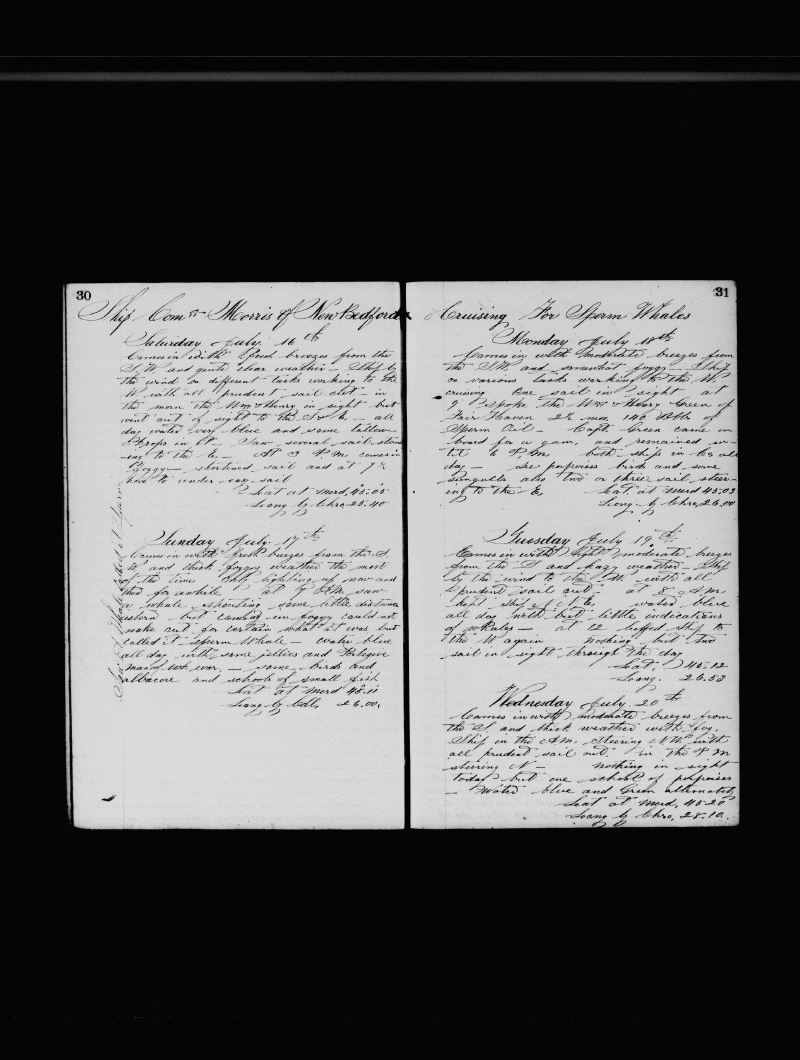 30
Ship Com Morris of New Bedford
Saturday July. 16th
Comes in with fresh breezes from the
S.W and quite clear weather - Ship by
the wind on different tacks working to the
W. with all prudent sail out - in
the morn the Wm & Henry in sight but
went out of sight to the - all
day water very blue and some tallow
drops in it - Saw several sail stand
-ing to the E - At 3 P.M comes in
foggy - shortened sail and at 7½
hove to under easy sail
Lat at Merd, 45.05
Long by Chro, 25.40
Sunday July. 17th
Comes in with fresh breezes from the S.
W and thick foggy weather the most
of the time Only lighting up now and
then for awhile at 9 A.M. saw
a whale spouting some little distance
astern but coming in foggy could not
make out for certain what it was but
called it Sperm Whale - water blue
all day with some jellies and Portegue
man of war, - some birds and
albacore and schools of small fish
Lat at Merd 45.11
Long by Cal, 26.00,
Saw a Whale called it Sperm
31
Cruising For Sperm Whales
Monday July 18th
Comes in with moderate breezes from
the S.W. and somewhat foggy - Ship
on various tacks working to the W.
cruising One sail in sight at
9 spoke the Wm & Henry Green of
Fair Haven 2½ mos, 140 bbls of
Sperm Oil - Capt Green came on
board for a gam, and remained un-
til 6 P.M both ships in Co all
day - See porpoises birds and some
also two or three sail steer-
ing to the E, Lat. at Merd 45.03
Long. by Chro, 26.00
Tuesday July 19th
Comes in with light moderate breezes
from the S and hazy weather - Ship
by the wind to the W. with all
prudent sail out, at 8 A.M.
kept Ship E. water blue
all day with but little indications
of whales - at 12 luffed Ship to
the W again Nothing but two
sail in sight through the day
Lat. 45-12
Long. 26.53
Wednesday July. 20th
Comes in with moderate breezes from
the S. and thick weather with fog.
Ship in the A.M. steering N.W. with
all prudent sail out. in the P.M
steering N - Nothing in sight
today but one school of porpoises
- Water blue and Green alternately
Lat at Merd, 45-20
Long by Chro, 28.10.